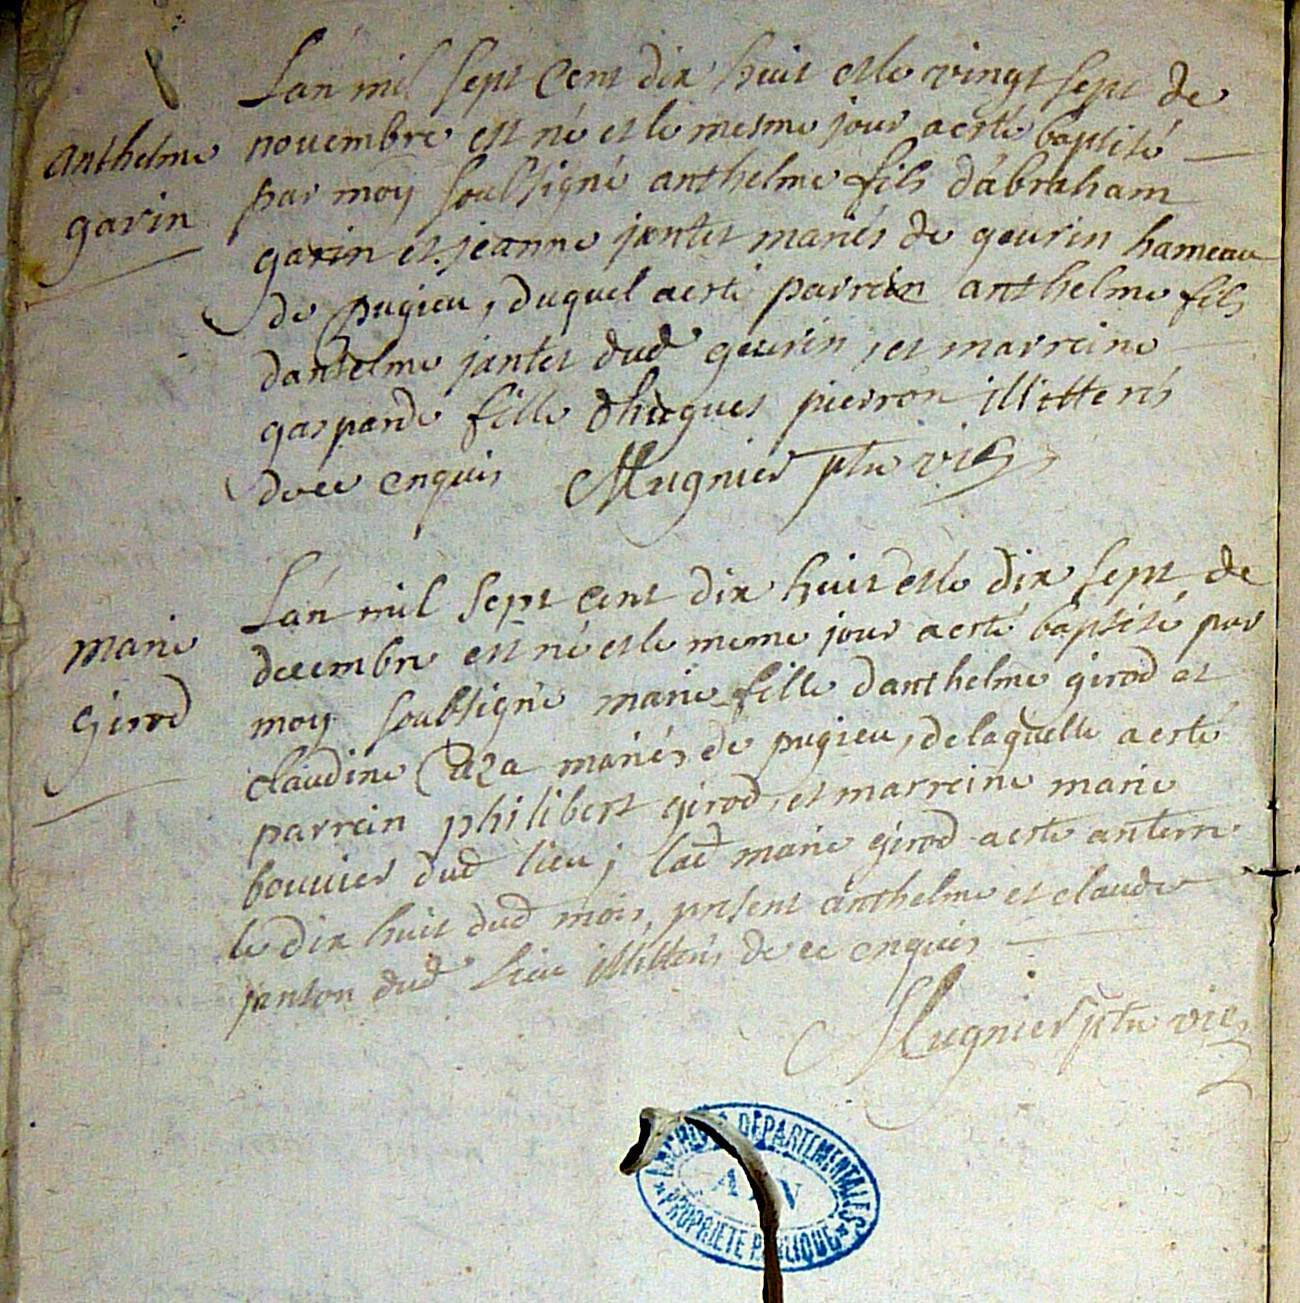 Lan mil sept cent dix huit et le vingt sept de
novembre est né et le mesme jour a esté baptisé
par moy soubsigné anthelme fils d'abraham
garin et jeanne jantet mariés de geurin hameau
de pugieu, duquel a esté parrein anthelme fils
danselme jantet dud geurin, et marreine
gasparde fille d'hugues pierron illitterés
de ce enquis Mugnier ptre vic
Anthelme
garin
Lan mil sept cent dix huit et le dix sept de
decembre est né et le meme jour a esté baptisé par
moy soubsigné marie fille danthelme girod et
claudine Caza mariés de pugieu, de laquelle a esté
parrein philibert girod, et marreine marie
bouvier dud lieu; lad marie girod a esté anterre
le dix huit dud mois, present anthelme et claude
janton dud lieu illitterés de ce enquis
Mugnier ptre vic
marie
girod
ARCHIVES DÉPARTEMENTALES
AIN
PROPRIÉTÉ PUBLIQUE